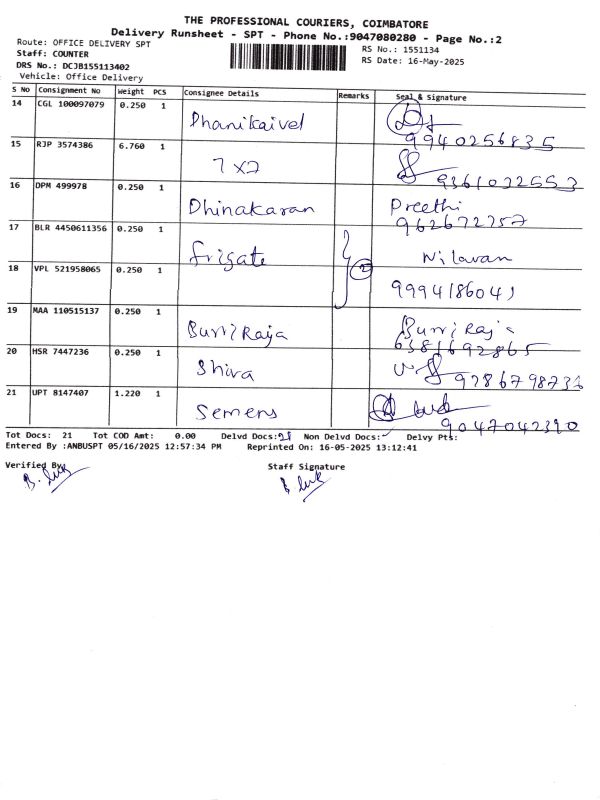 THE PROFESSIONAL COURIERS, COIMBATORE
Delivery Runsheet - SPT - Phone No.:9047080280 - Page No.:2
Route: OFFICE DELIVERY SPT
RS No.: 1551134
Staff: COUNTER
RS Date: 16-May-2025
DRS No.: DCJB155113402
Vehicle: Office Delivery
S No Consignment No Weight PCS Consignee Details Remarks Seal & Signature
14 CGL 100097079 0.250 1 Dhanikaivel
9940256835
15 RJP 3574386 6.760 1 7x7
9361022553
16 DPM 499978 0.250 1 Dhinakaran Preethi
9626722757
17 BLR 4450611356 0.250 1 frigate Nilavan
18 VPL 521958065 0.250 1 2 9994186041
19 MAA 110515137 0.250 1 Burri Raja Burri Raja
6381692865
20 HSR 7447236 0.250 1 Shiva
9286798736
21 UPT 8147407 1.220 1 Semens
9047042390
Tot Docs: 21 Tot COD Amt: 0.00 Delvd Docs:21 Non Delvd Docs: Delvy Pts:
Entered By :ANBUSPT 05/16/2025 12:57:34 PM Reprinted On: 16-05-2025 13:12:41
Verified By Staff Signature